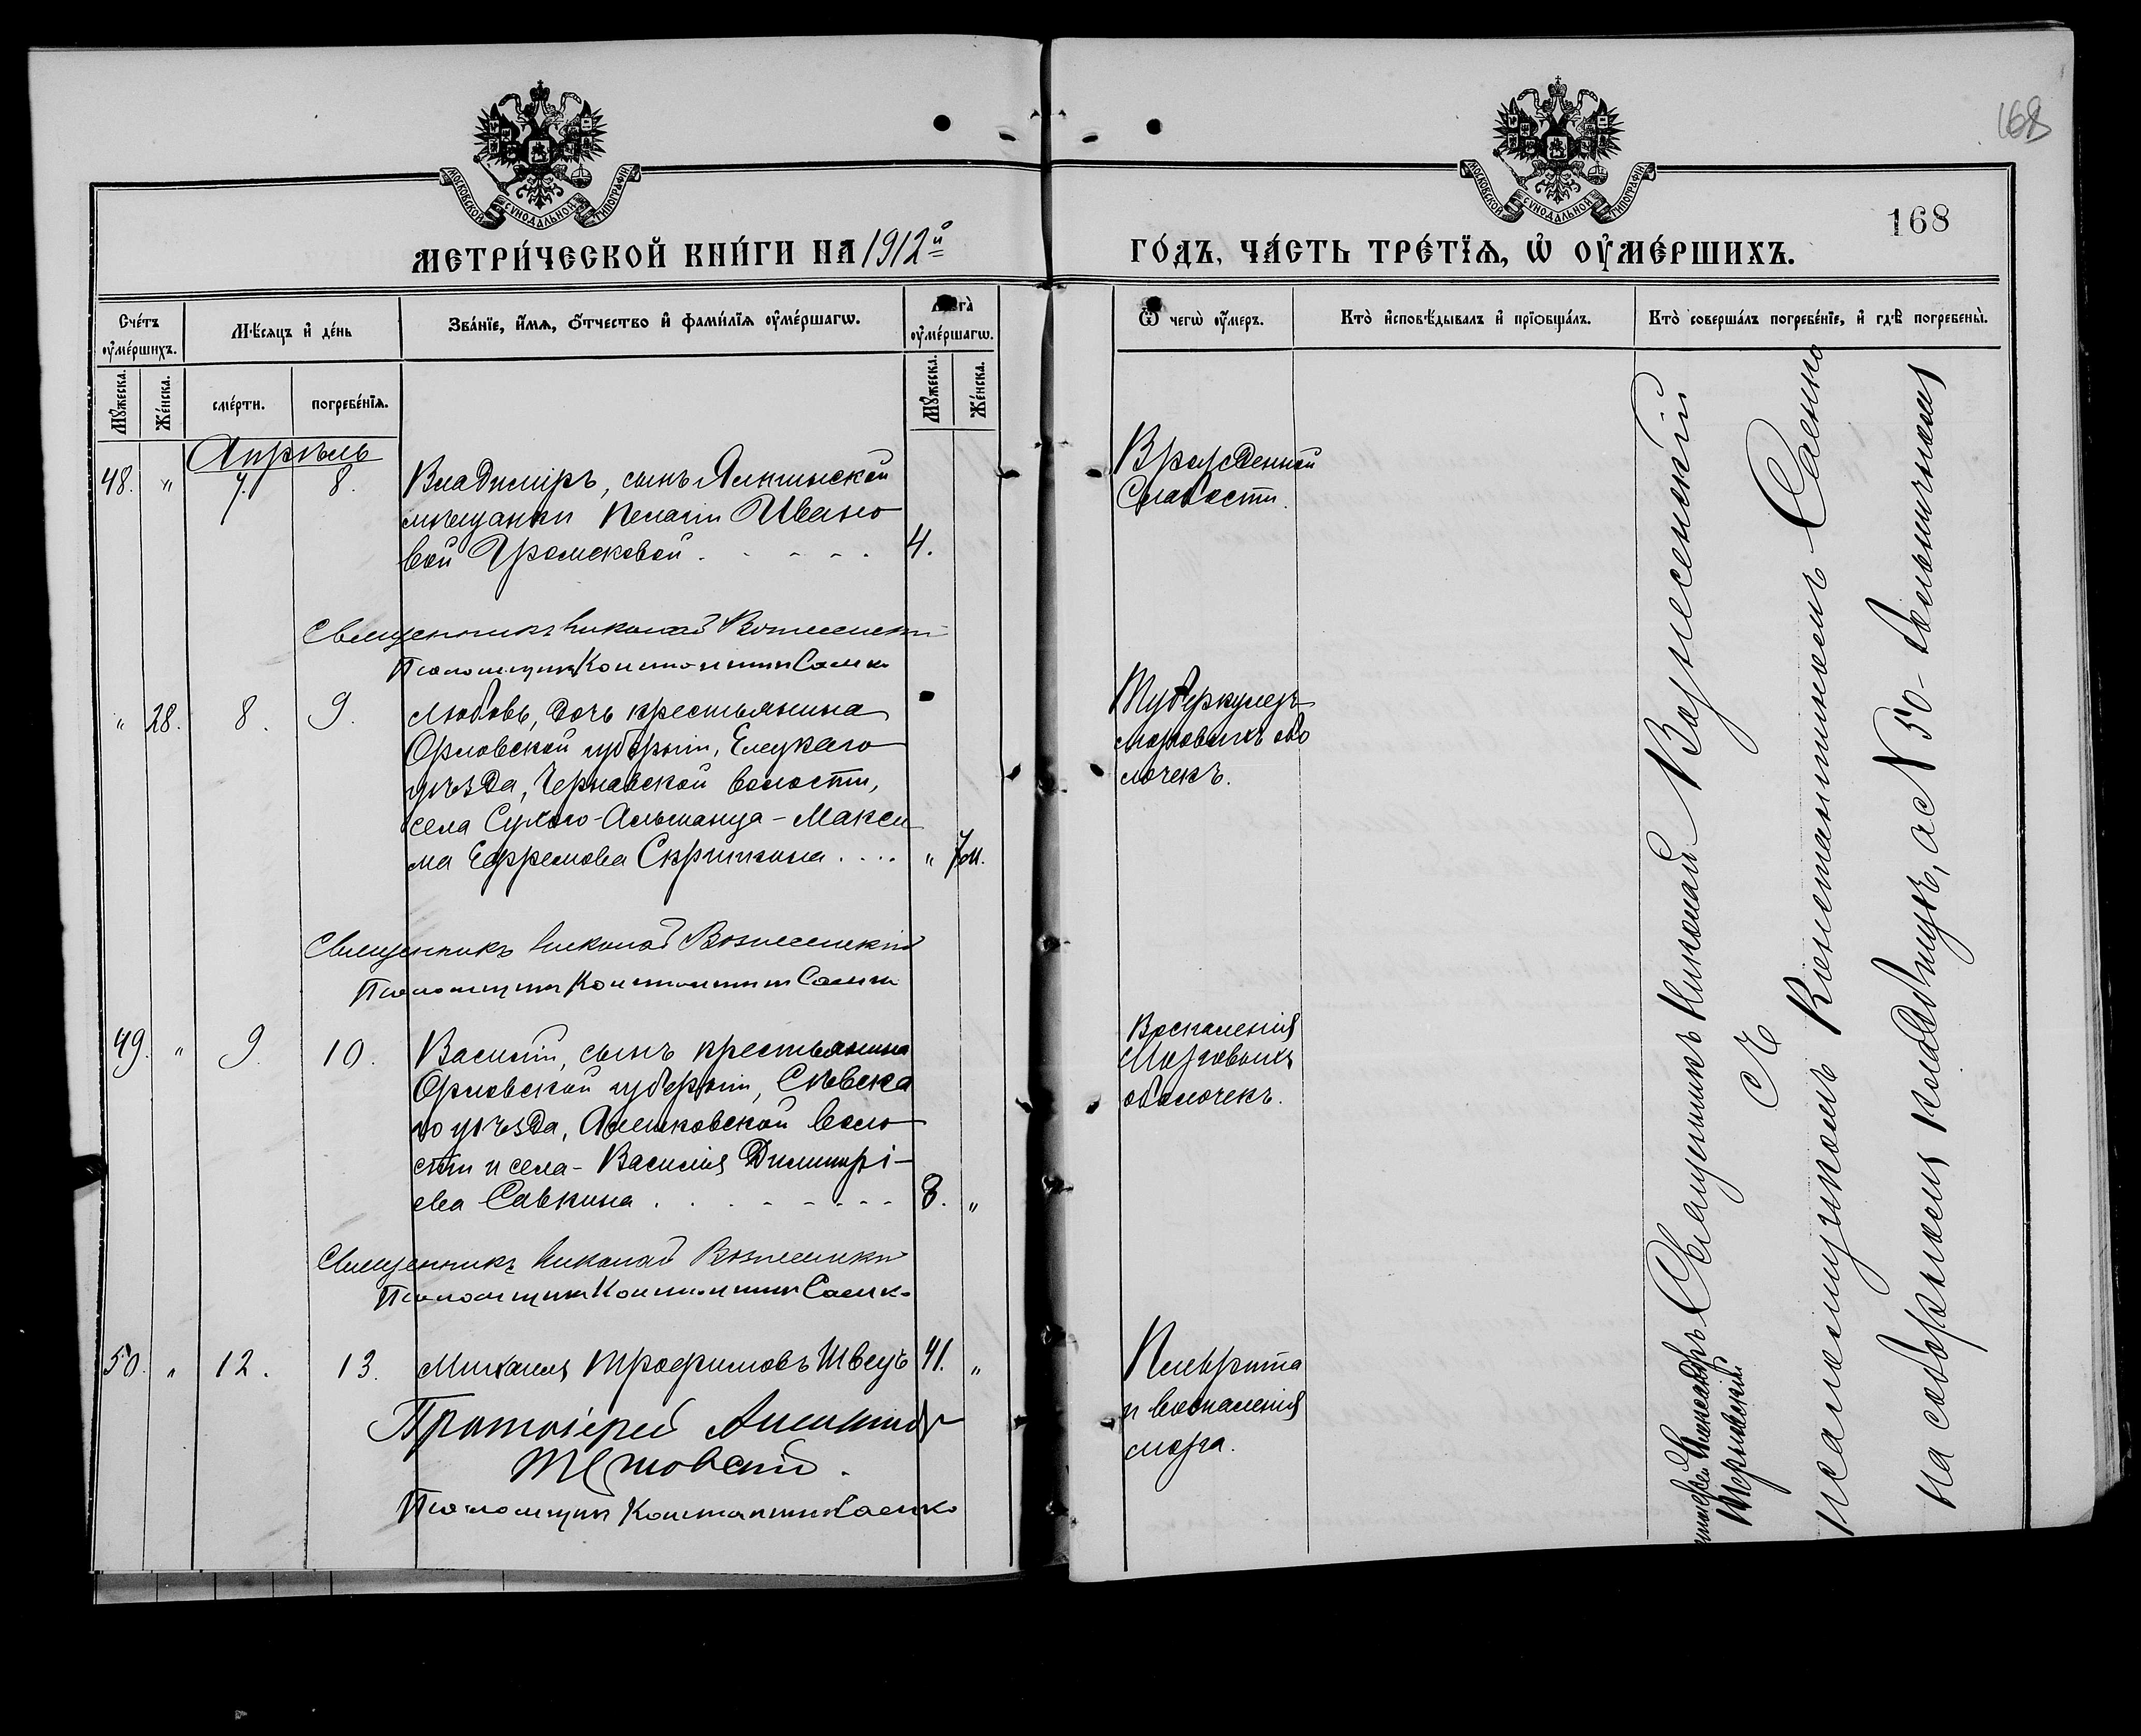 168
168
МОСКОВСКОЙ СѴНОДАЛЬНОЙ ТИПОГРАФІИ
МОСКОВСКОЙ СѴНОДАЛЬНОЙ ТИПОГРАФІИ
МЕТРИ́ЧЕСКОЙ КНИ́ГИ НА 1912й
ГО́ДЪ, ЧА́СТЬ ТРЕ́ТЇѦ, Ѡ҆ ОУ҆МЕ́РШИХЪ.
Сче́тъ оу҆ме́ршихъ.
Мѣ́сяцъ и҆ де́нь
Зва́нїе, и҆́мѧ, ѻ҆́тчество и҆ фами́лїѧ оу҆ме́ршагѡ.
оу҆ме́ршагѡ.
Ѿ чегѡ̀ оу҆́меръ.
Кто̀ и҆сповѣ́дывалъ и҆ прїѻбща́лъ.
Кто̀ соверша́лъ погребе́нїе, и҆ гдѣ̀ погребены̀.
Мꙋ́жеска.
Же́нска.
сме́рти.
погребе́нїѧ.
Мꙋ́жеска.
Же́нска.
Апрѣль
48. " 7. 8. Владиміръ, сынъ Ялтинской
мѣщанки Пелагіи Ивано
вой Громсковой. 4.
Врожденной
Слабости.
Священникъ Николай Вознесенскій
Псаломщикъ Константинъ Саенко
" 28. 8. 9. Любовь, дочь крестьянина
Орловской губерніи, Елецкаго
уѣзда, Чернавской волости,
села Сухого-Ольшанца - Макси
ма Ефремова Скрипкина .... " 7м.
Туберкулезъ
мозговыхъ обо
лочекъ.
Священникъ Николай Вознесенскій
Псаломщикъ Константинъ Саенко
49. " 9. 10. Василій, сынъ крестьянина
Орловской губерніи, Сѣвска
го уѣзда, Алешковской воло
сти и села - Василія Димитрі-
ева Савкина 3. "
Воспаленія
Мозговыхъ
оболочекъ.
Священникъ Николай Вознесенскій
Псаломщикъ Константинъ Саенко
50. " 12. 13. Михаилъ Трофимовъ Швецъ 41. "
Плеврита
и воспаленія
мозга.
Протоіерей Александръ
Терновскій.
Псаломщикъ Константинъ Саенко
Протоіерей Александръ
Терновскій
Священникъ Николай Вознесенскій
съ
псаломщикомъ Константиномъ Саенко
на соборномъ кладбищѣ, а с № 50-